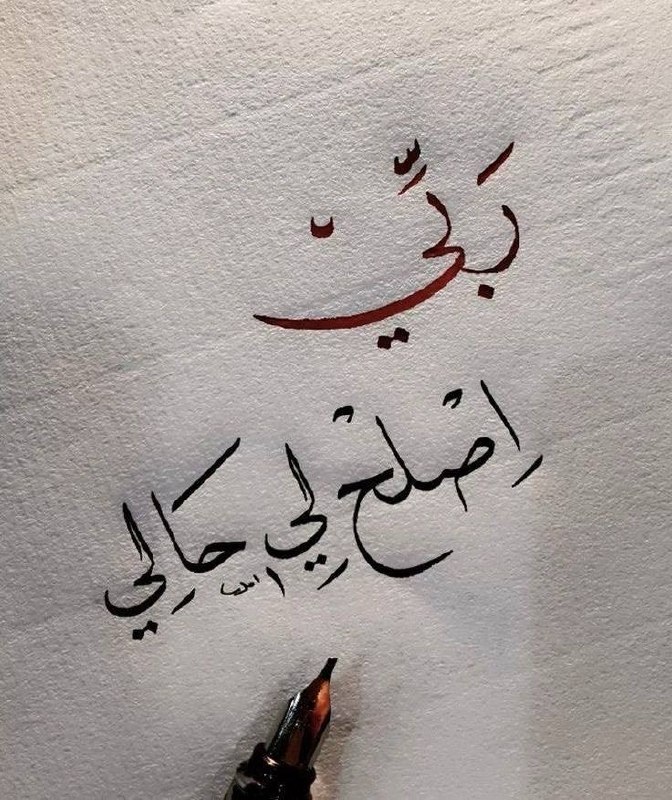 رَبِّي
اِصْلحْ لِي حَالِي